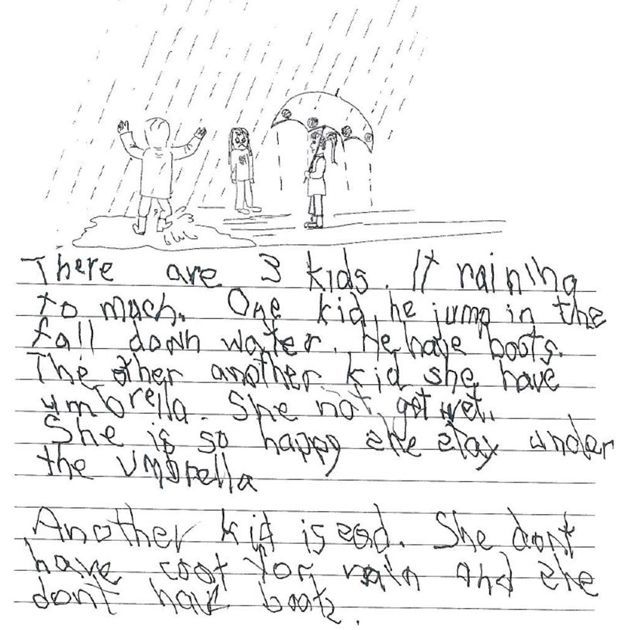 There are 3 kids. It raining
to much. One kid, he jump in the
fall down water. He have boots.
The other another kid she have
umbrella. She not get wet.
She is so happy she stay under
the umbrella
Another kid is sad. She dont
have coat for rain and she
dont have boots.